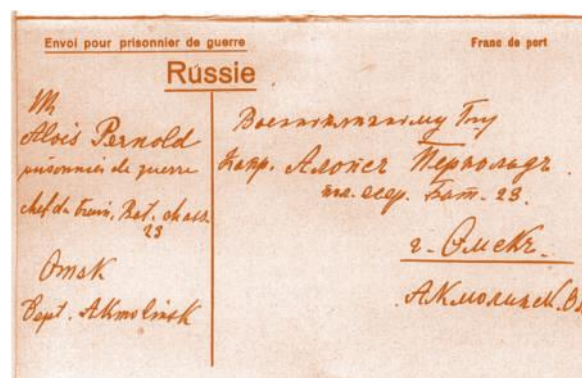 Envoi pour prisonnier de guerre
Franc de port
Russie
Mr
Alois Pernold
prisonnier de guerre
chef du train, Bat. chass.
23
Omsk
Dept. Akmolinsk
Военнопленному Гну
Капр. Алоисъ Перnольдъ
Бат. 23.
г. Омскъ.
Акмолинск.